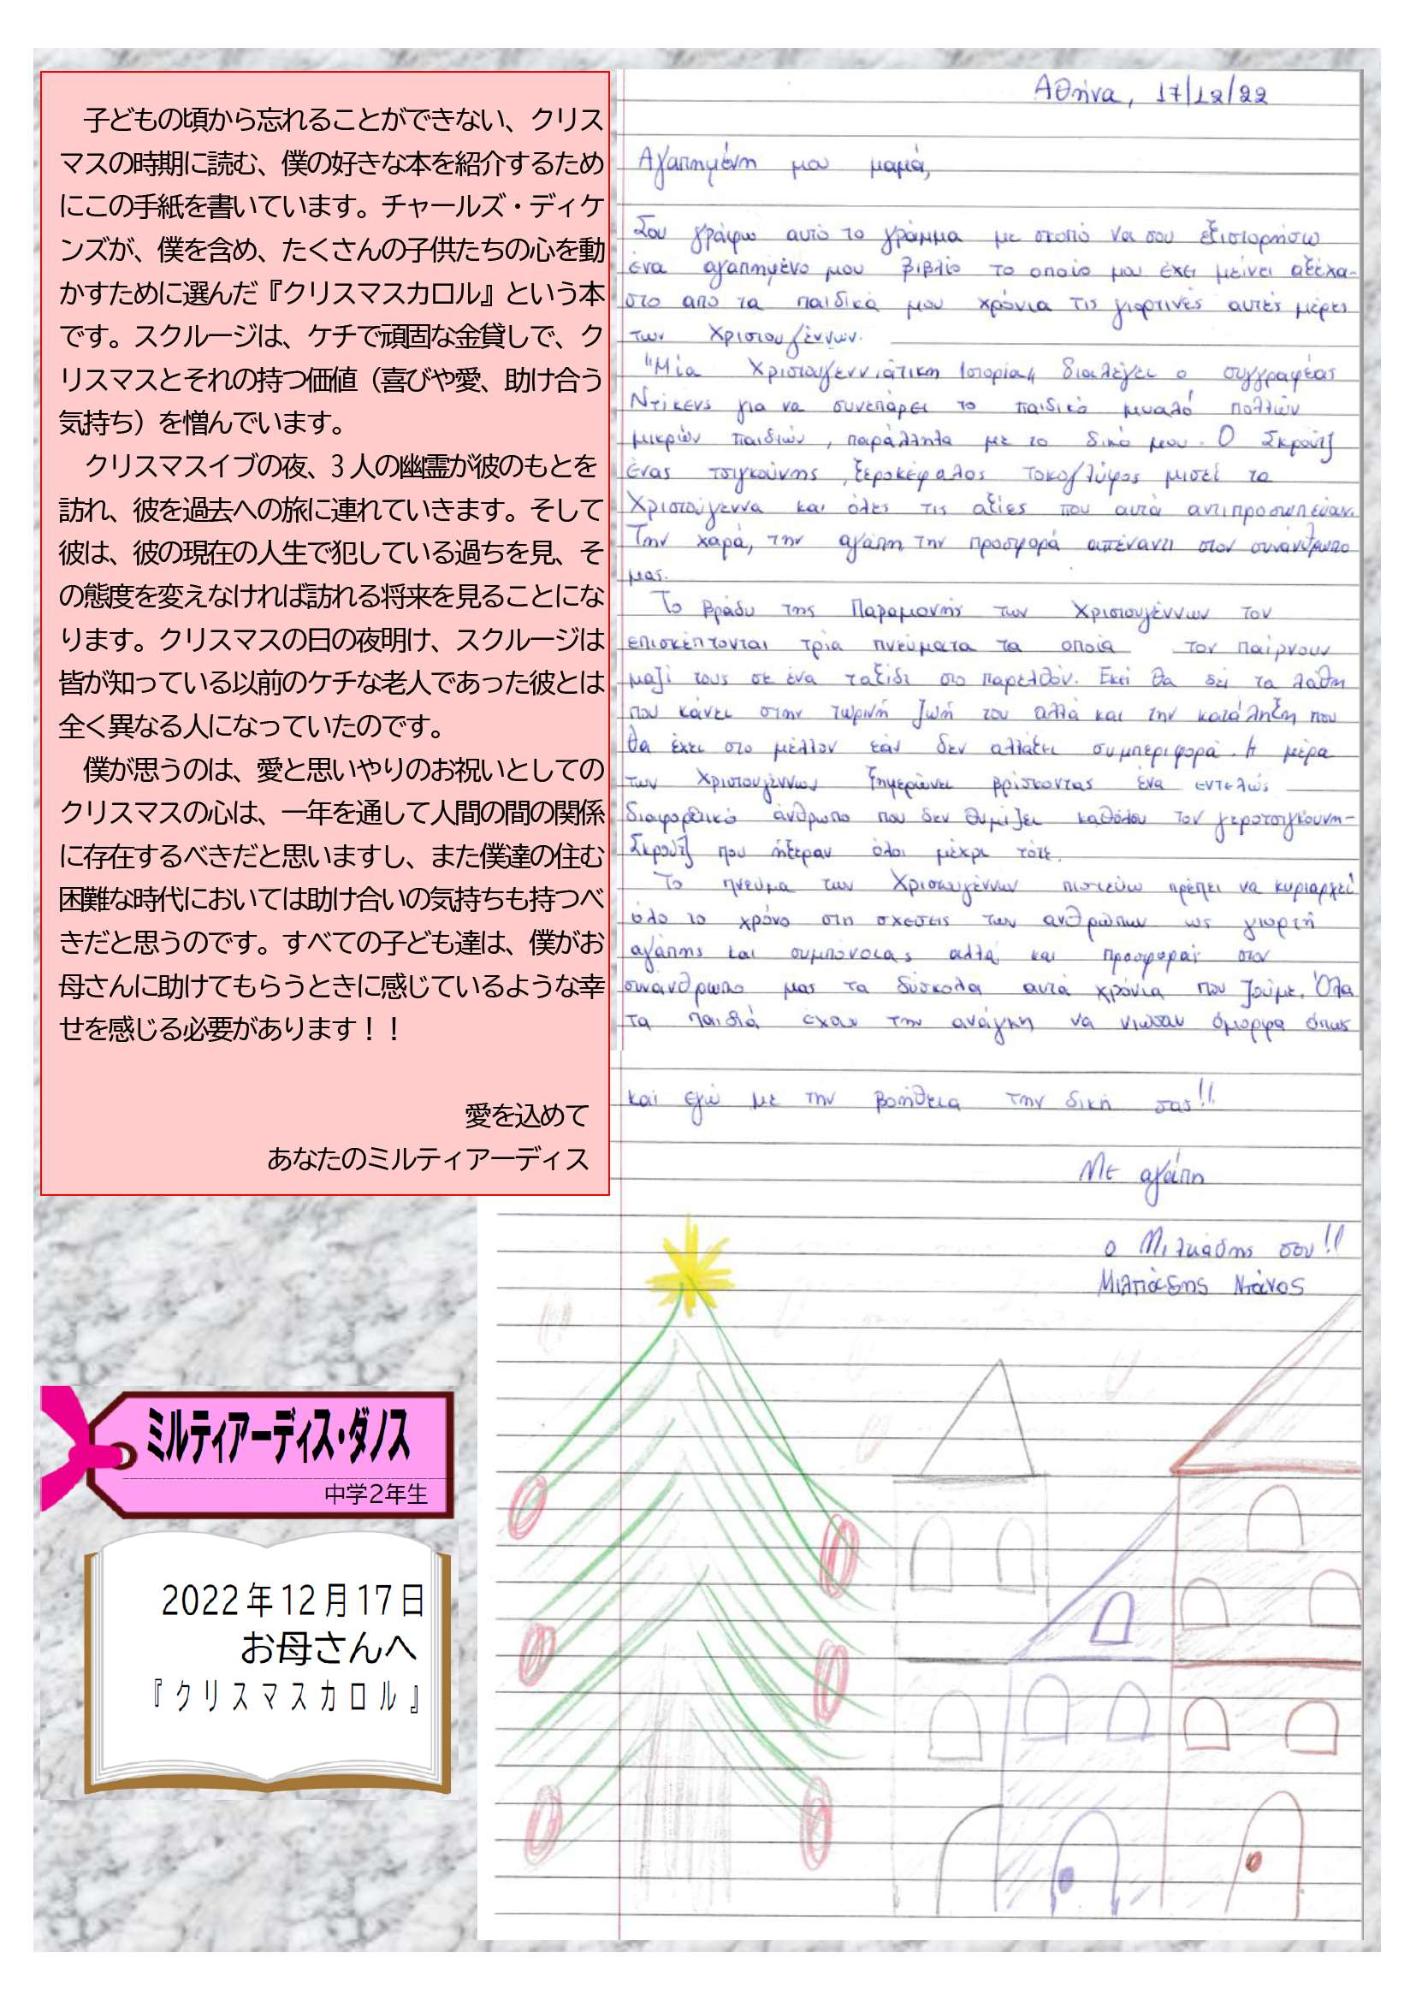 子どもの頃から忘れることができない、クリス
マスの時期に読む、僕の好きな本を紹介するため
にこの手紙を書いています。チャールズ・ディケ
ンズが、僕を含め、たくさんの子供たちの心を動
かすために選んだ『クリスマスカロル』という本
です。スクルージは、ケチで頑固な金貸しで、ク
リスマスとそれの持つ価値（喜びや愛、助け合う
気持ち）を憎んでいます。
クリスマスイブの夜、3人の幽霊が彼のもとを
訪れ、彼を過去への旅に連れていきます。そして
彼は、彼の現在の人生で犯している過ちを見、そ
の態度を変えなければ訪れる将来を見ることにな
ります。クリスマスの日の夜明け、スクルージは
皆が知っている以前のケチな老人であった彼とは
全く異なる人になっていたのです。
僕が思うのは、愛と思いやりのお祝いとしての
クリスマスの心は、一年を通して人間の間の関係
に存在するべきだと思いますし、また僕達の住む
困難な時代においては助け合いの気持ちも持つべ
きだと思うのです。すべての子ども達は、僕がお
母さんに助けてもらうときに感じているような幸
せを感じる必要があります！！
愛を込めて
あなたのミルティアーディス
Αθήνα, 17/12/22
Αγαπημένη μου μαμά,
Σου γράφω αυτό το γράμμα με σκοπό να σου εξιστορήσω
ένα αγαπημένο μου βιβλίο το οποίο μου έχει μείνει αξέχα-
στο από τα παιδικά μου χρόνια τις γιορτινές αυτές μέρες
των Χριστουγέννων.
"Μία Χριστουγεννιάτικη Ιστορία" διαλέγει ο συγγραφέας
Ντίκενς για να συνεπάρει το παιδικό μυαλό πολλών
μικρών παιδιών, παράλληλα με το δικό μου. Ο Σκρούτζ
ένας τσιγκούνης, ξεροκέφαλος τοκογλύφος μισεί τα
Χριστούγεννα και όλες τις αξίες που αυτά αντιπροσωπεύουν.
Την χαρά, την αγάπη την προσφορά απέναντι στον συνάνθρωπο
μας.
Το βράδυ της Παραμονής των Χριστουγέννων τον
επισκέπτονται τρία πνεύματα τα οποία τον παίρνουν
μαζί τους σε ένα ταξίδι στο παρελθόν. Εκεί θα δει τα λάθη
που κάνει στην τωρινή ζωή του αλλά και την κατάληξη που
θα έχει στο μέλλον εάν δεν αλλάξει συμπεριφορά. Η μέρα
των Χριστουγέννων ξημερώνει βρίσκοντας ένα εντελώς
διαφορετικό άνθρωπο που δεν θυμίζει καθόλου τον γεροτσιγκούνη-
Σκρούτζ που ήξεραν όλοι μέχρι τότε.
Το πνεύμα των Χριστουγέννων πιστεύω πρέπει να κυριαρχεί
όλο το χρόνο στη σχέσεις των ανθρώπων ως γιορτή
αγάπης και συμπόνοιας αλλά και προσφοράς στον
συνάνθρωπο μας τα δύσκολα αυτά χρόνια που ζούμε. Όλα
τα παιδιά έχουν την ανάγκη να νιώσουν όμορφα όπως
και εγώ με την βοήθεια την δική σας!!
Με αγάπη
ο Μιλτιάδης σου!!
Μιλτιάδης Ντάνος
ミルティアーディス・ダノス
中学2年生
2022年12月17日
お母さんへ
『クリスマスカロル』